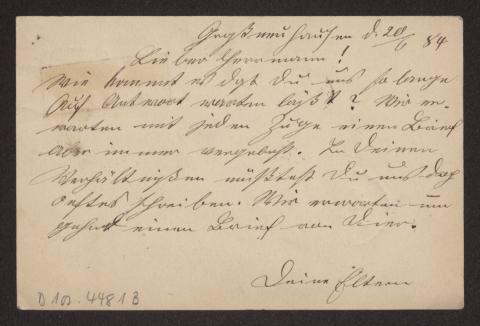 Großneuhausen d. 20/6 84
Lieber Herrmann!
Wie kommt es daß Du uns so lange
Auf Antwort warten läßt? Wir er-
warten mit jeden Zuge einen Brief
aber immer vergebst. In Deinen
Verhältnißen müßtest Du uns doch
oeftes schreiben. Wir erwarten nun
einen Brief von Dier.
Deine Eltern
D 10. 4481 B